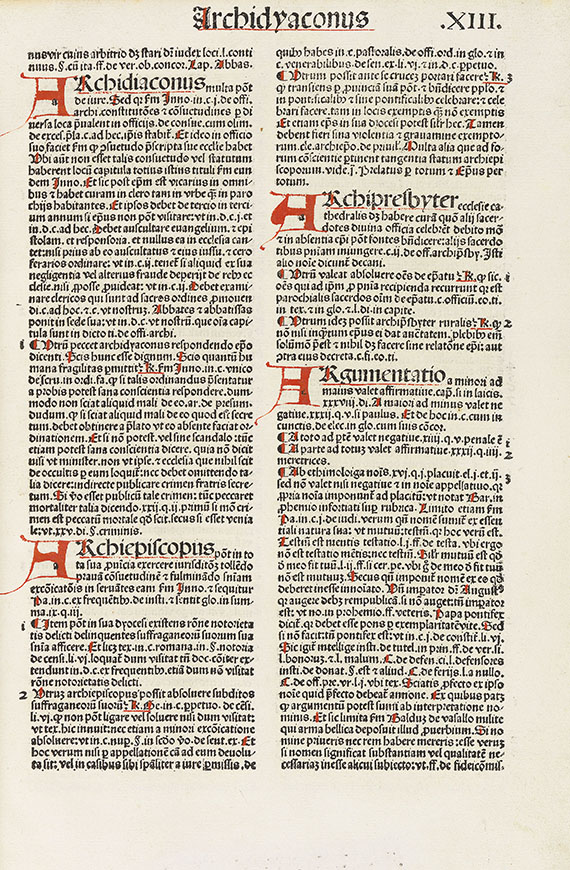 Archidyaconus .XIII.
nus vir cuius arbitrio dʒ stari dñ iudex loci. l. conti
nuus. §. cũ ita. ff. de ver. ob concor. Lap. Abbas.
ARchidiaconus multa põt
de iure. Sed qꝛ fm Inno. in c. j. de offi.
archi. constitutões ⁊ cõsuetudines ꝑ di
uersa loca p̃ualent in officijs. de consue. cum olim.
de excess. p̃la. c. ad hec. ipis stabit̃. Et ideo in officio
suo faciet fm ꝙ ꝯsuetudo p̃scripta sue ecclie habet
Ubi aũt non esset talis consuetudo vel statutum
haberent locũ capitula totius istius tituli fm eun
dem Inno. Et sic post ep̃m est vicarius in omni
bus ⁊ habet curam in clero tam in vrbe q̃ in par
chijs habitantes. Et ipsos debet de tercio in terci
um annum si ep̃us non põt visitare: vt in. d. c. j. et
in. d. c. ad hec. Debet auscultare euangelium. ⁊ epi
stolam. et responsoria. et nullus ea in ecclesia can
tet: nisi prius ab eo auscultatus ⁊ eius iussu. ⁊ cero
ferarios ordinare: vt in c. ij. tenet̃ si aliquid ex sua
negligentia vel alterius fraude deperijt de rebꝰ ec
clesie. nisi ꝓosse. ꝓuideat: vt in c. ij. Debet exami
nare clericos qui sunt ad sacros ordines ꝓmouen
di. c. ad hoc. ⁊ c. vt nostrum. Abbates ⁊ abbatissas
ponit in sede sua: vt in. d. c. vt nostrũ. que oĩa capi
tula sunt in dicto ti. de offi. archi.
1 ¶ Utrũ peccet archidyaconus respondendo ep̃o
dicenti. Scis hunc esse dignum. Scio quantũ hu
mana fragilitas ꝑmittit. K. fm Inno. in c. vnico
de scru. in ordi. fa. ꝙ si talis ordinandus p̃sentatur
a probis potest sana conscientia respondere. dum
modo non sciat aliquid mali de eo: ar. de presum
dudum. qꝛ si sciat aliquid mali de eo quod esset secre
tum. debet obtinere a p̃lato vt eo absente faciat or
dinationem. Et si nõ potest. vel sine scandalo: tũc
etiam potest sana conscientia dicere. quia nõ dicit
nisi vt minister. non vt ip̃se. ⁊ ecclesia que nihil scit
de occultis ꝑ eum loquit̃: nec debet omittendo ta
lia dicere: indirecte publicare crimen fratris secre
tum. Si ṽo esset publicũ tale crimen: tũc peccaret
mortaliter talia dicendo. xxij. q. ij. primũ. si mõ cri-
men est peccatũ mortale qd̃ scit. secus si esset venia
le: vt. xxv. di. §. criminis.
ARchiepiscopus põt in to
ta sua ꝓuincia exercere iurisdictõeʒ tolledo
prauã cõsuetudinẽ ⁊ fulminãdo sniam
excõicatõis in seruates eam fm Inno. ⁊ sequitur
Pa. in. c. ex frequẽtibꝰ. de insti. ⁊ sentit glo. in sum
ma. ix. q. iij.
1 ¶ Item põt in sua dyocesi existens rõne notorieta
tis delicti delinquentes suffraganeorũ suorum sua
snĩa afficere. Et licʒ tex. in c. romana. in §. notoria
de censi. li. vj. loquat̃ dum visitat tñ doc. cõiter ex
tendunt in. d. c. ex frequentibꝰ. etiã dum nõ visitat
rõne notorietatis delicti.
2 Utruʒ archiepiscopus possit absoluere subditos
suffraganeorũ suorũ. K. Ge. in c. ꝑpetuo. de cẽsi.
li. vj. ꝙ non põt ligare vel soluere nisi dum visitat:
vt tex. hic innuit: nec etiam a minori excõicatione
absoluere: vt in c. nup̃. §. in sc̃do ṽo. de sent. ex. Et
hoc verum nisi ꝑ appellationẽ cã ad eum deuolu-
ta sit: vel in casibus sibi sp̃aliter a iure ꝑmissis. de
quibꝰ habes in. c. pastoralis. de offi. ord. in glo. ⁊ in
c. venerabilibus. de sen. ex. li. vi. ⁊ in. d. c. ꝑpetuo.
¶ Utrum possit ante se crucẽ portari facere. K. 3
ꝙ transiens ꝑ ꝓuinciã suã põt ⁊ bñdicere pplo. ⁊
in pontificalibꝰ ⁊ sine pontificalibꝰ celebrare: ⁊ cele
brari facere. tam in locis exemptis q̃ nõ exemptis
Et etiam ep̃s in sua diocesi potest silr hec. Tamen
debent fieri sina violentia ⁊ grauamine exempto-
rum. cle. archiep̃o. de priuil. Multa alia que ad fo-
rum cõscientie ꝑtinent tangentia statum archiepi
scoporum. vide. j. Prelatus ꝑ totum ⁊ Ep̃us per
totum.
ARchipresbyter ecclesie ca
thedralis dʒ habere curã quõ alij sacer-
dotes diuina officia celebrẽt debito mõ
⁊ in absentia ep̃i põt fontes bñdicere: alijs sacerdo
tibus pniam iniungere. c. ij. de off. archip̃sby. Isti
alio noĩe dicunt̃ decani.
¶ Utrũ valeat absoluere oẽs de ep̃atu. K. ꝙ sic. 1
oẽs qui ad ipm̃ ꝓ pnĩa recipienda recurrunt qꝛ est
parochialis sacerdos oĩm de ep̃atu. c. officiũ. eo. ti.
in tex. ⁊ in glo. ⁊ l. di. in capite.
¶ Utrum idez possit archip̃sbyter ruralis. K. ꝙ 2
nõ nisi inq̃tum ep̃us ei dat auctatem. plebibꝰ em̃
solum p̃est ⁊ nihil dʒ facere sine relatõne ep̃i: aut
ꝯtra eius decreta. c. fi. eo. ti.
ARgumentatio a minori ad
maius valet affirmatiue. cap̃. si in laicis.
xxxviij. di. A maiori ad minus valet ne
gatiue. xxxij. q. v. si paulus. Et de hoc in c. cum in
cunctis. de elec. in glo. cum suis cõcor.
¶ A toto ad p̃tẽ valet negatiue. xiij. q. v. penale ẽ 1
¶ A parte ad totuz valet affirmatiue. xxxij. q. iiij. 2
meretrices.
¶ Ab ethimologia nois. xvj. q. j. placuit. el. j. et. ij. 3
sed nõ valet nisi negatiue ⁊ in noĩe appellatiuo. qꝛ
ꝓpria noĩa imponunt̃ ad placitũ: vt notat Bar. in
ꝓhemio infortiati suꝑ rubrica. Limito etiam fm
Pa. in c. j. de iudi. verum qñ nomẽ sumit̃ ex essen
tiali natura sua: vt mutuũ: testm: qꝛ hoc verũ est.
Testm̃ est mentis testatio. l. j. ff. de testa. vbi ergo
nõ est testatio mẽtis: nec testm̃. Silr mutuũ est qd̃
ð meo fit tuũ. l. ij. ff. si cer. pe. vbi g̃ de meo ð fit tuũ
nõ est mutuũ. Secus qñ imponit̃ nomẽ ex eo qd̃
deberet inesse innoĩato. Uñ imperator dr̃ August̃
qꝛ augere debʒ rempublicã. si nõ auget: tñ imp̃ator
est: vt no. in prohemio. ff. veteris. Papa pontifex
dicit̃. qꝛ debet esse pons ꝑ exemplaritatẽ vite. Sed
si nõ facit: tñ pontifex est: vt in c. j. de constit. li. vj.
Sic igit̃ intellige insti. de tutel. in prin. ff. de ver. si.
l. honoruz. ⁊ l. malum. C. de defen. ci. l. defensores
insti. de donat. §. est ⁊ aliud. C. de ferijs. l. a nullo.
C. de off. p̃or. vr. l. j. vbi tex. Sciatis ꝓfecto ex ipso
noĩe quid p̃fecto debeat̃ annone. Ex quibus patʒ
ꝙ argumentũ potest sumi ab interpretatione no-
minis. Et sic limita fm Baldus de vasallo milite
qui arma bellica deposuit illud ꝓuerbium. Si no
mine priueris nec rem habere mereris: esse veruʒ
si nomen significat substantiam vel qualitatẽ ne-
cessariaʒ inesse alicui subiecto: vt. ff. de fideicõmis.